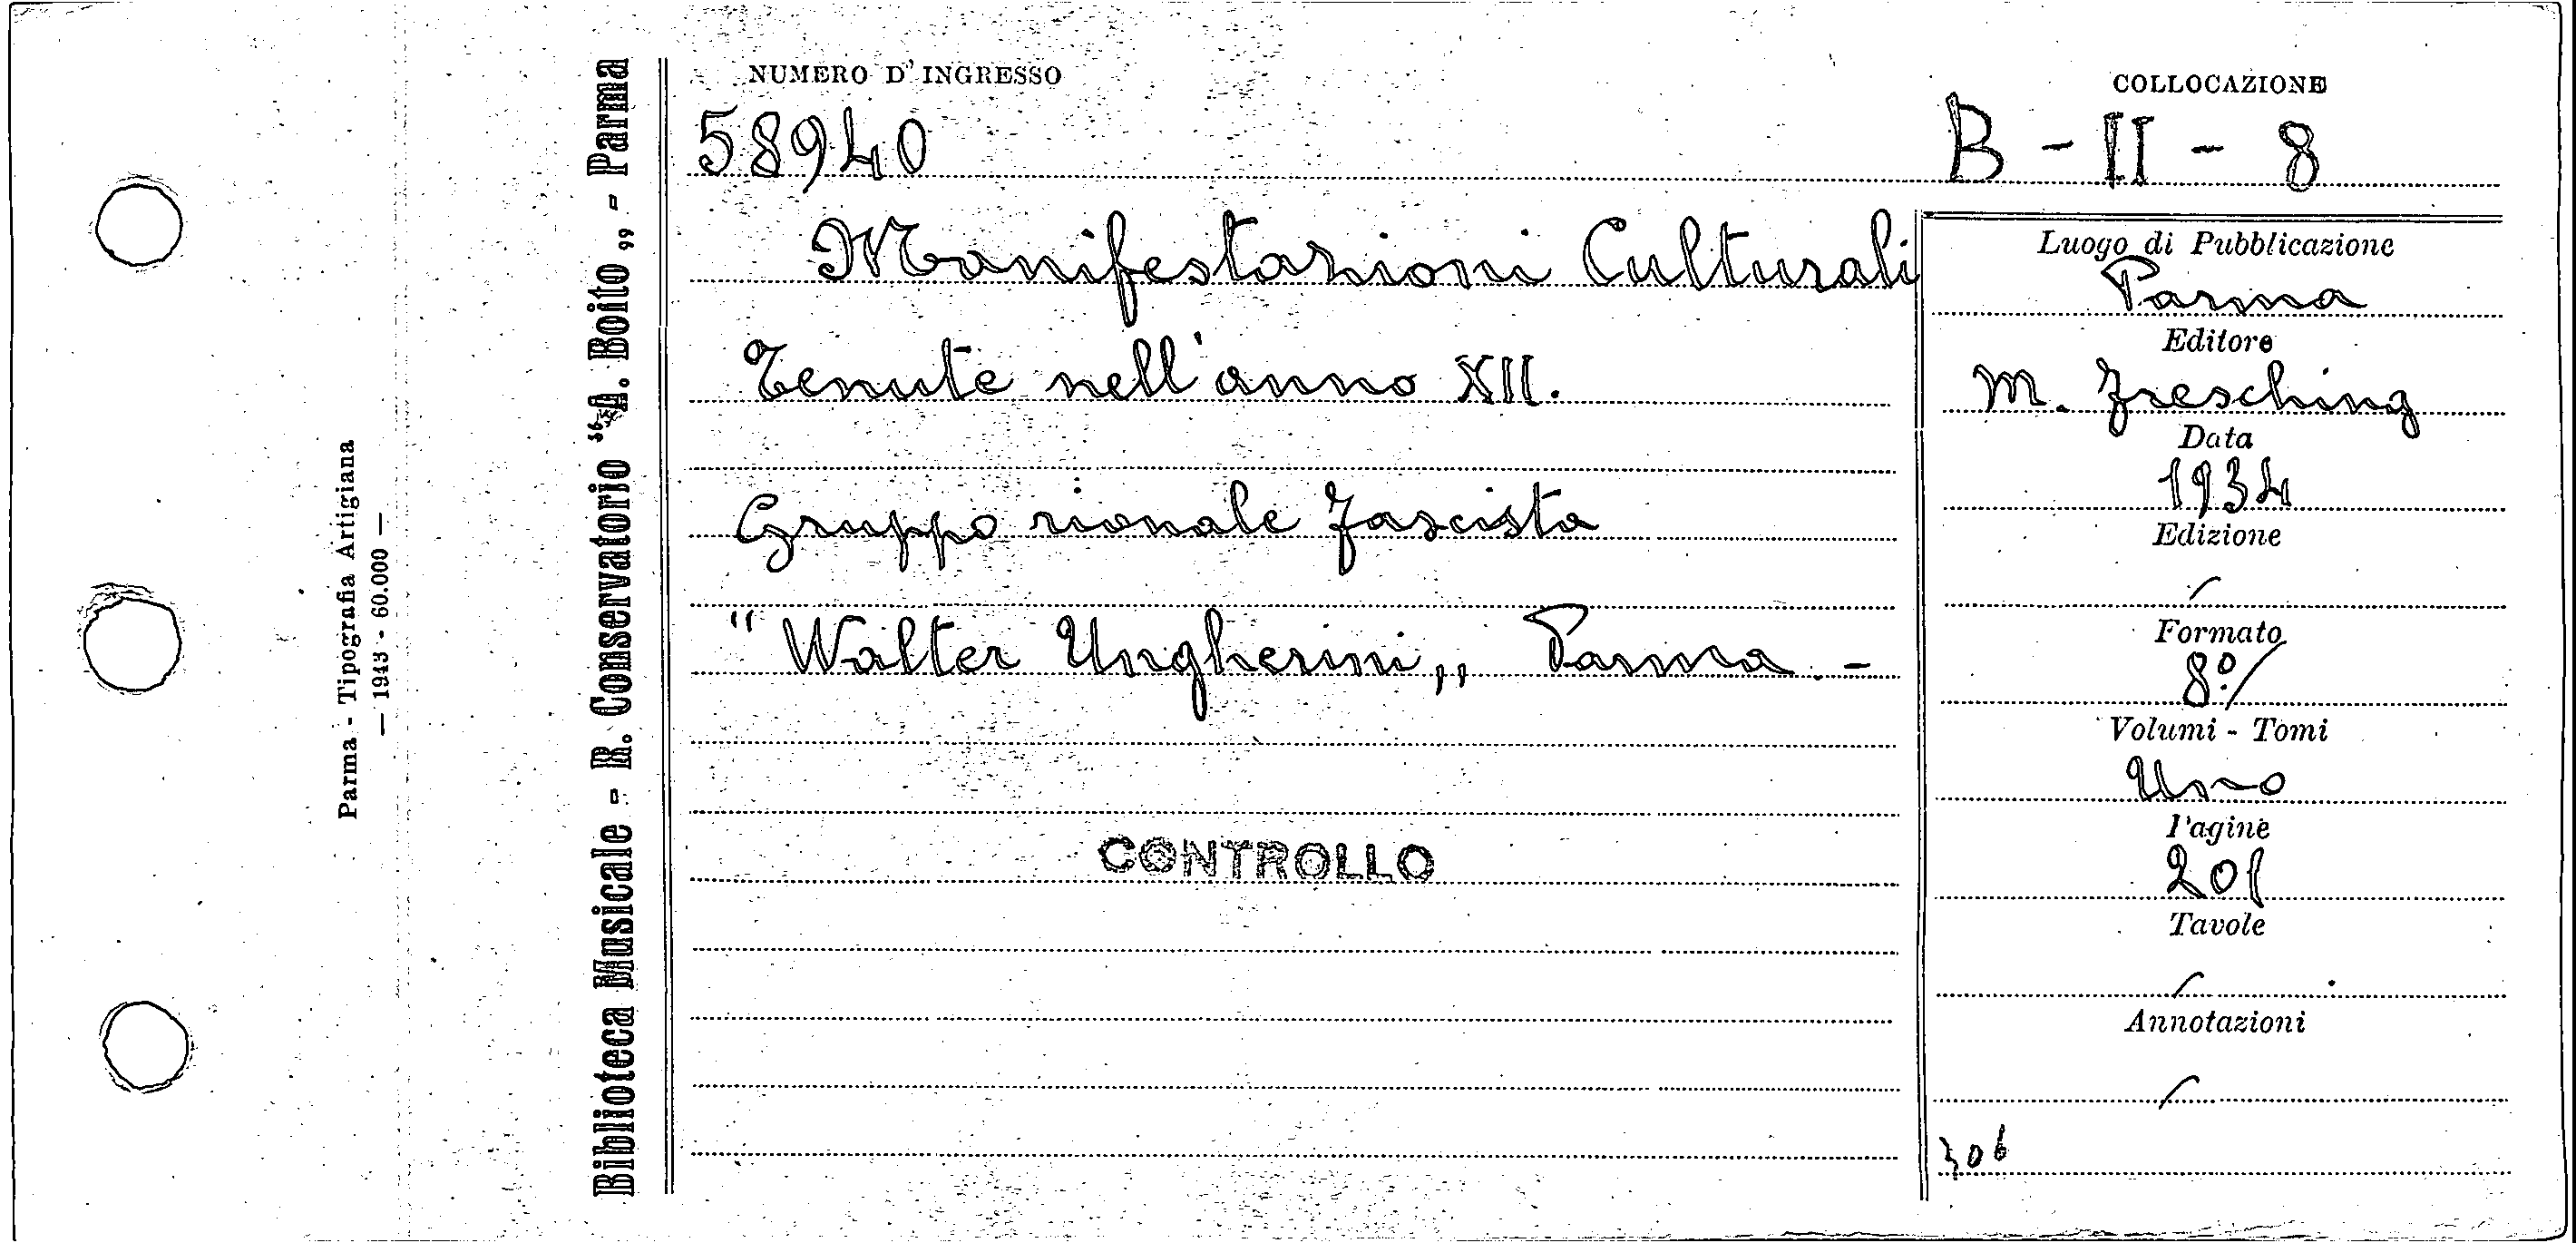 Parma - Tipografia Artigiana
— 1943 - 60.000 —
Biblioteca Musicale - R. Conservatorio "A. Boito" - Parma
NUMERO D'INGRESSO
58940
COLLOCAZIONE
B - II - 8
Manifestazioni Culturali
Tenute nell'anno XII.
Gruppo rionale fascista
"Walter Ungherini,, Parma. -
CONTROLLO
Luogo di Pubblicazione
Parma
Editore
M. Fresching
Data
1934
Edizione
/
Formato
8º/
Volumi - Tomi
Uno
Pagine
201
Tavole
/
Annotazioni
/